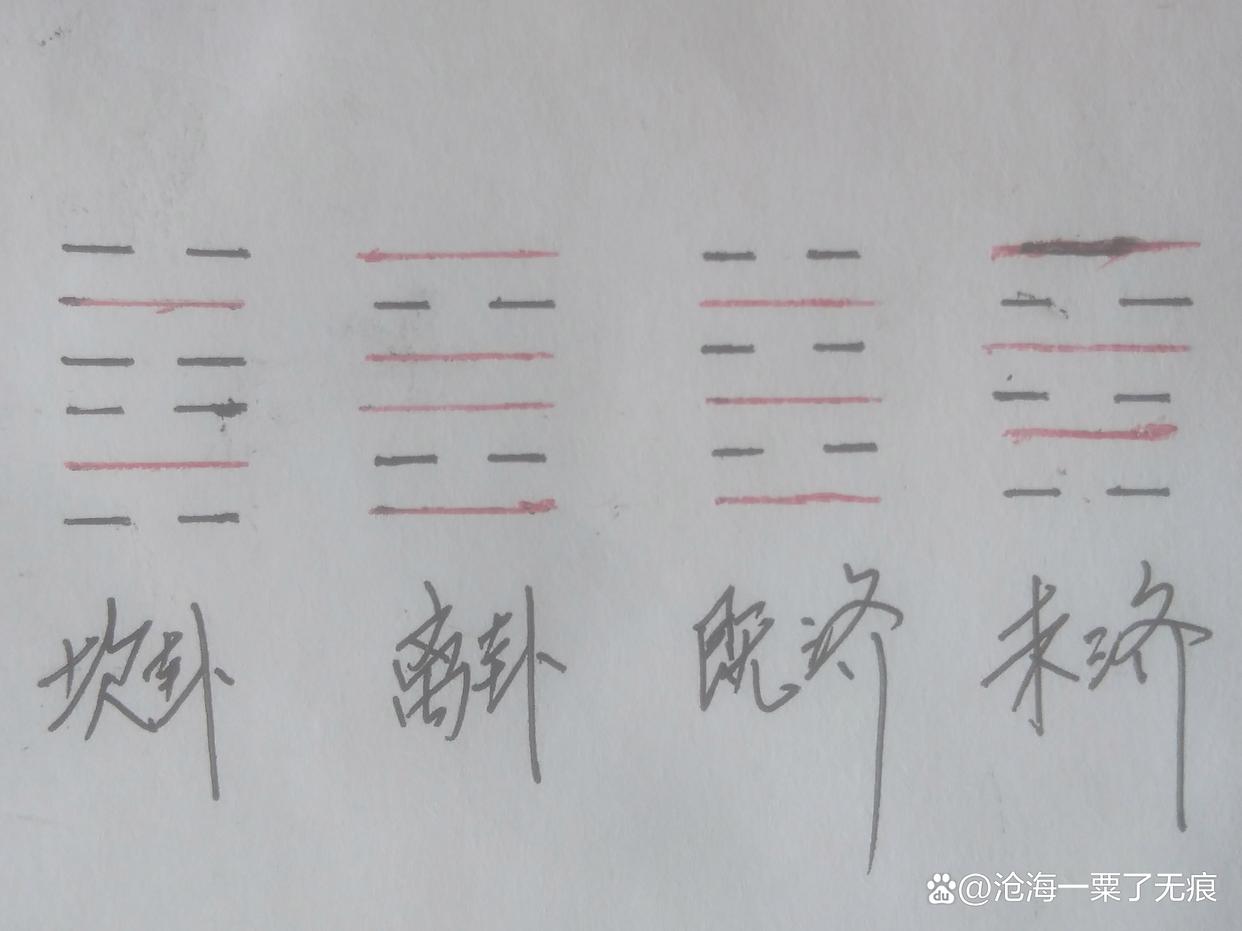 坎卦 离卦 既济 未济
du @沧海一粟了无痕